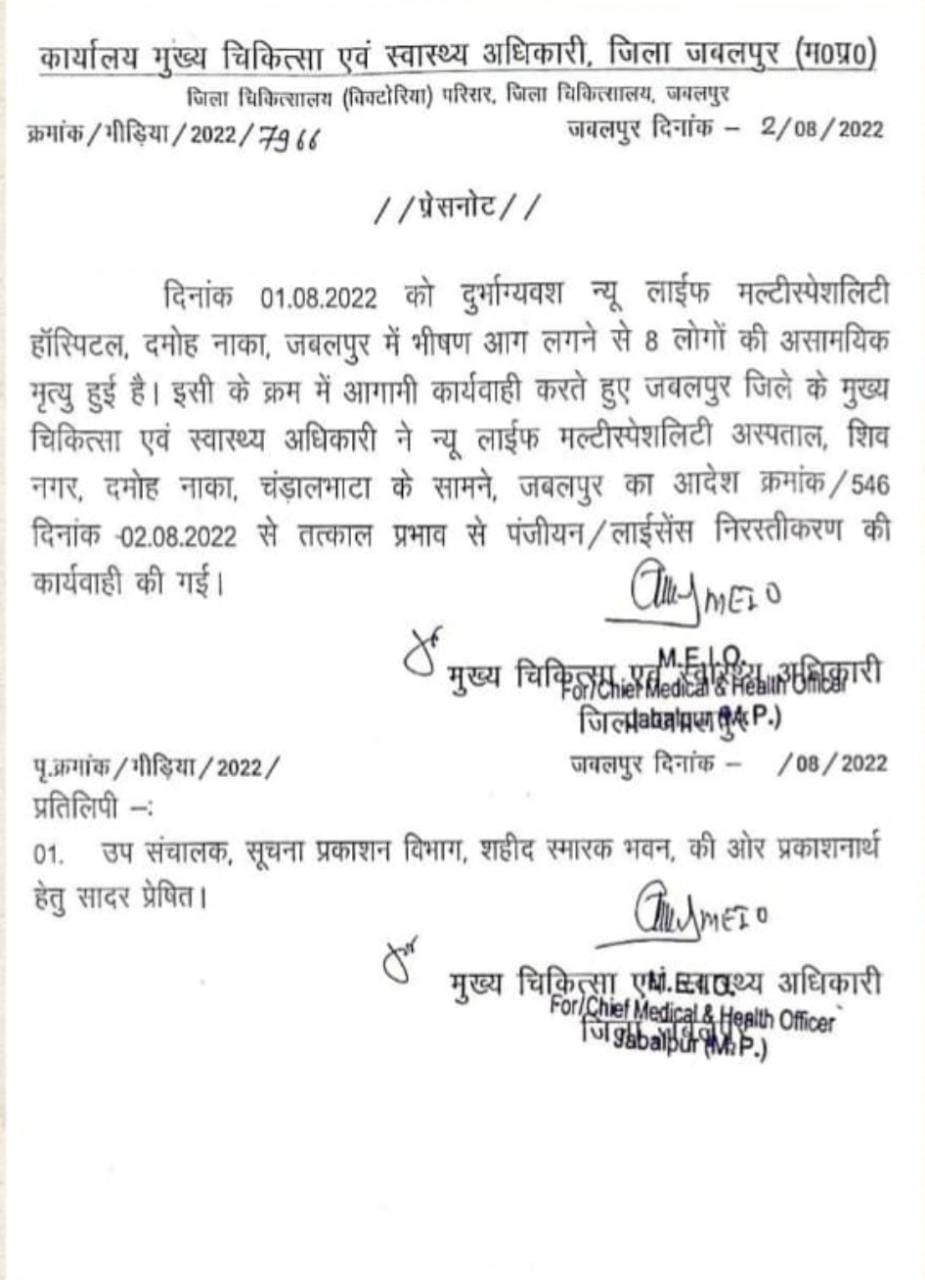 कार्यालय मुख्य चिकित्सा एवं स्वास्थ्य अधिकारी, जिला जबलपुर (म0प्र0)
जिला चिकित्सालय (विक्टोरिया) परिसर, जिला चिकित्सालय, जबलपुर
क्रमांक/मीड़िया/2022/7966 जबलपुर दिनांक – 2/08/2022
//प्रेसनोट//
दिनांक 01.08.2022 को दुर्भाग्यवश न्यू लाईफ मल्टीस्पेशलिटी
हॉस्पिटल, दमोह नाका, जबलपुर में भीषण आग लगने से 8 लोगों की असामयिक
मृत्यु हुई है। इसी के क्रम में आगामी कार्यवाही करते हुए जबलपुर जिले के मुख्य
चिकित्सा एवं स्वास्थ्य अधिकारी ने न्यू लाईफ मल्टीस्पेशलिटी अस्पताल, शिव
नगर, दमोह नाका, चंड़ालभाटा के सामने, जबलपुर का आदेश क्रमांक/546
दिनांक -02.08.2022 से तत्काल प्रभाव से पंजीयन/लाईसेंस निरस्तीकरण की
कार्यवाही की गई।
MEIO
M.E.I.O.
मुख्य चिकित्सा एवं स्वास्थ्य अधिकारी
For/Chief Medical & Health Officer
जिला जबलपुर
Jabalpur (M.P.)
पृ.क्रमांक/मीड़िया/2022/ जबलपुर दिनांक – /08/2022
प्रतिलिपी –:
01. उप संचालक, सूचना प्रकाशन विभाग, शहीद स्मारक भवन, की ओर प्रकाशनार्थ
हेतु सादर प्रेषित।
MEIO
मुख्य चिकित्सा एवं स्वास्थ्य अधिकारी
M.E.I.O.
For/Chief Medical & Health Officer
जिला जबलपुर
Jabalpur (M.P.)